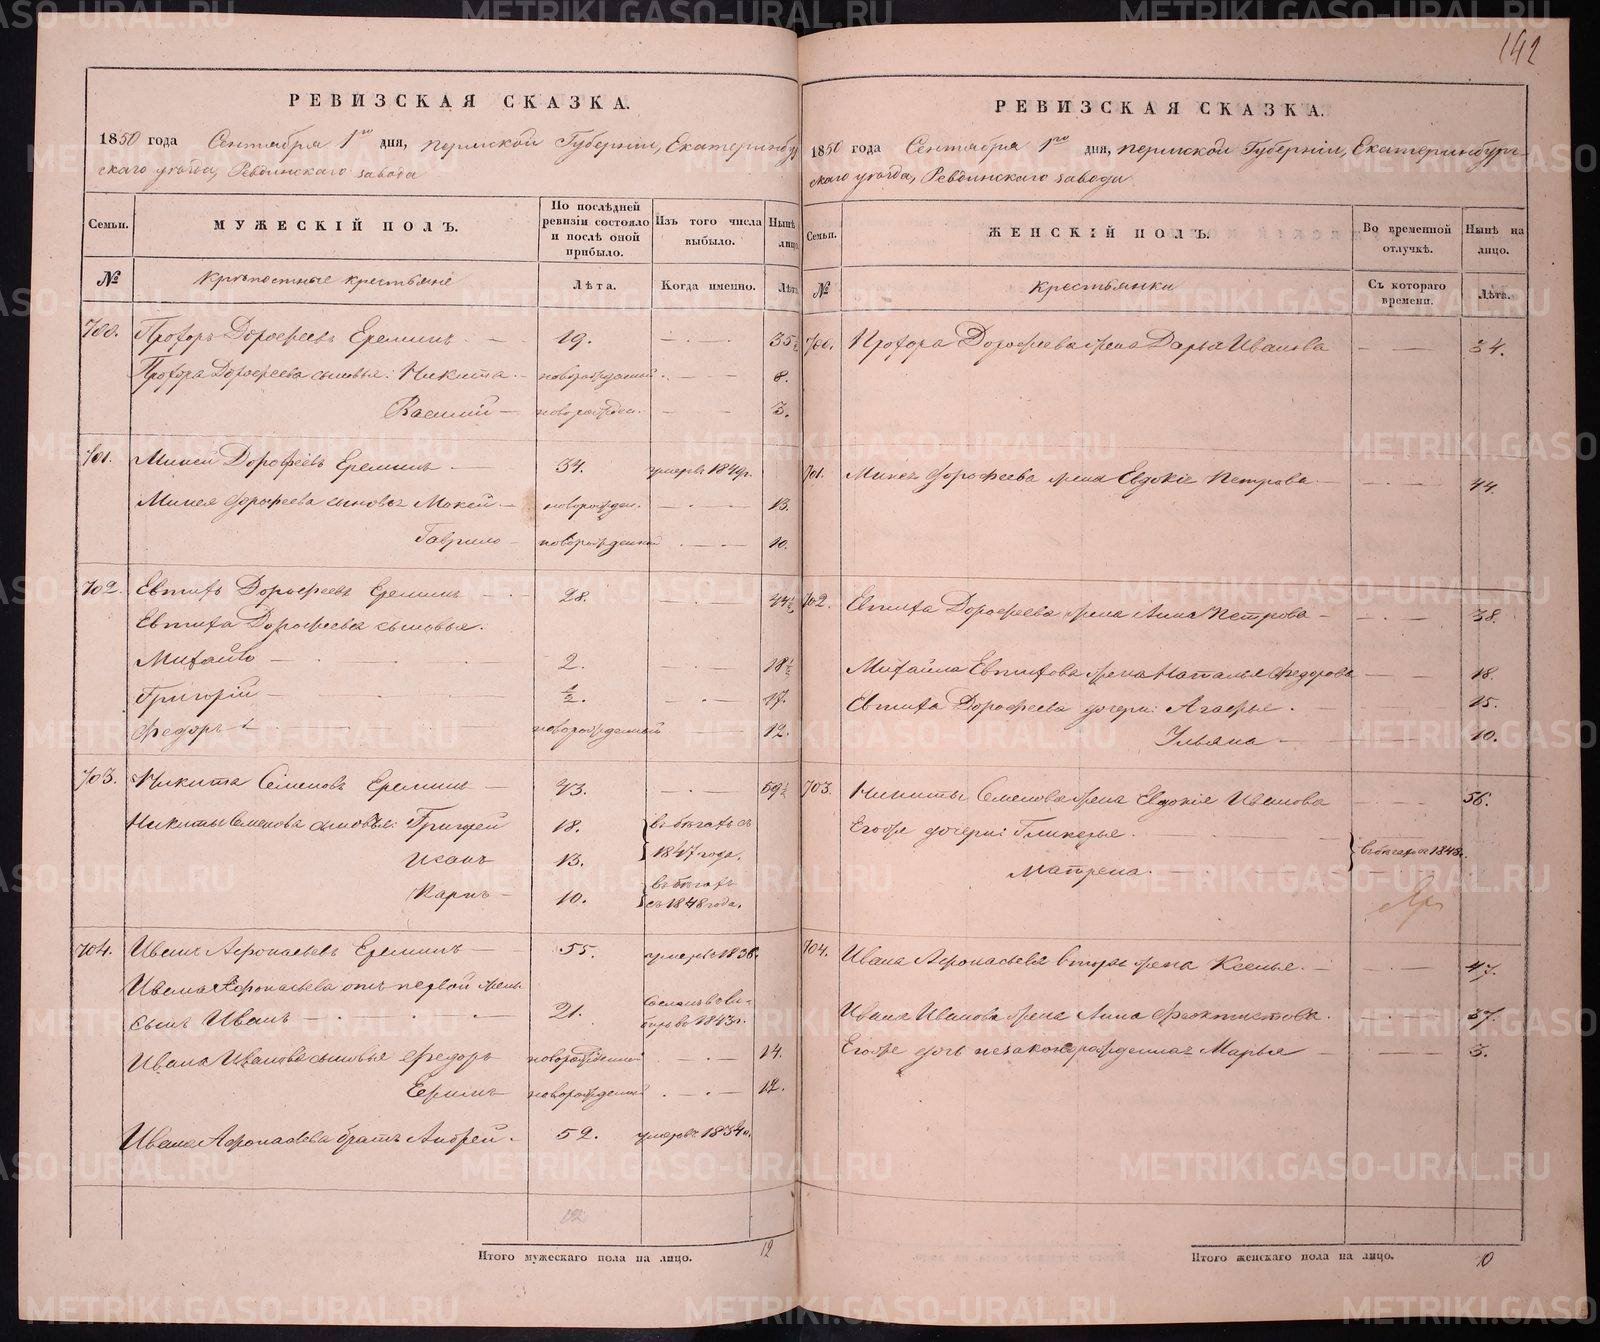 142
РЕВИЗСКАЯ СКАЗКА.
1850 года Сентября 1го дня, Пермской Губернiи, Екатеринбур
скаго уѣзда, Ревдинскаго завода
Семьи.
МУЖЕСКІЙ ПОЛЪ.
По послѣдней ревизіи состояло и послѣ оной прибыло.
Изъ того числа выбыло.
Нынѣ лицо.
№
Крѣпостные крестьяне
Лѣта.
Когда именно.
Лѣта
700. Прохоръ Дорофеевъ Ереминъ 19. 35½
Прохора Дорофеева сыновья: Никита новорожденной 8.
Василій новорожден. 3.
701. Миней Дорофеевъ Ереминъ 34. умеръ 1849г.
Минея Дорофеева сыновья Мокей новорожден. 13.
Гаврило новорожденной 10.
702. Евтихъ Дорофеевъ Ереминъ 28. 44½
Евтиха Дорофеева сыновья.
Михайло 2. 18½
Григорій ½. 17.
Федоръ новорожденный 12.
703. Никита Семеновъ Ереминъ 43. 59½
Никиты Семенова сыновья: Григорей 18. въ бѣгахъ съ
Иванъ 13. 1847 года.
Карпъ 10. въ бѣгахъ съ 1848 года.
704. Иванъ Афонасьевъ Ереминъ 55. умеръ 1836.
Ивана Афонасьева отъ первой жены
сынъ Иванъ 21. Сосланъ въ Сибирь въ 1843г.
Ивана Иванова сыновья Федоръ новорожденной 14.
Ефимъ новорожденной 12.
Ивана Афонасьева братъ Андрей. 52. умеръ 1834г.
12
Итого мужескаго пола на лицо. 12
РЕВИЗСКАЯ СКАЗКА.
1850 года Сентября 1го дня, Пермской Губернiи, Екатеринбург-
скаго уѣзда, Ревдинскаго завода
Семьи.
ЖЕНСКІЙ ПОЛЪ.
Во временной отлучкѣ.
Нынѣ на лицо.
№
Крестьянки
Съ котораго времени.
Лѣта.
700. Прохора Дорофеева жена Дарья Иванова 34.
701. Минея Дорофеева жена Евдокія Петрова 44.
702. Евтиха Дорофеева жена Анна Петрова 38.
Михайла Евтихова жена Наталья Федорова 18.
Евтиха Дорофеева дочери: Агафья. 15.
Ульяна 10.
703. Никиты Семенова жена Евдокія Иванова 56.
Егоже дочери: Гликерья.
Матрена. въ бѣгахъ съ 1848г.
704. Ивана Афонасьева вторая жена Ксенья. 47.
Ивана Иванова жена Анна Феоктистова. 37.
Егоже дочь незаконорожденная Марья 3.
Итого женскаго пола на лицо. 10
METRIKI.GASO-URAL.RU